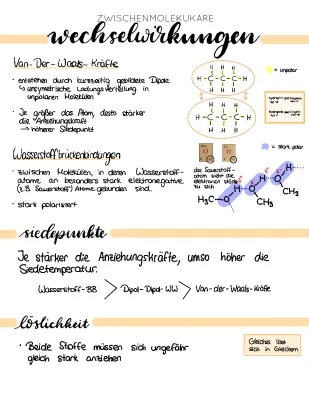 ZWISCHENMOLEKULARE
wechselwirkungen
Van-Der-Waals-Kräfte
· entstehen durch kurzzeitig gebildete Dipole
↳ unsymetrische Ladungsverteilung in
unpolaren Molekülen
· Je größer das Atom, desto stärker
die Anziehungskraft
→ höherer Siedepunkt
= unpolar
H H H
H-C-C-C-H
H H H
H H H
H-C-C-C-H
H H H
Wasserstoffbrückenbindungen
· zwischen Molekülen, in denen Wasserstoff-
atome an besonders stark elektronegative
(z.B. Sauerstoff) Atome gebunden sind.
· stark polarisiert
O
H
= stark polar
das Sauerstoff-
atom zieht die
elektronen stärker
zu sich
H₃C-O
H
O
CH₃
H
O
CH₃
siedepunkte
Je stärker die Anziehungskräfte, umso höher die
Siedetemperatur.
Wasserstoff-BB > Dipol-Dipol-WW > Van-der-Waals-Kräfte
löslichkeit
· Beide Stoffe müssen sich ungefähr
gleich stark anziehen
Gleiches löst
sich in Gleichem